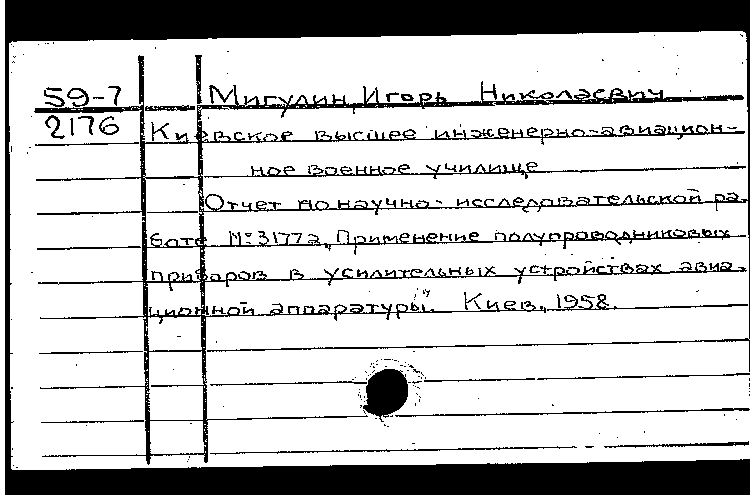 59-7 Мигулин, Игорь Николаевич
2176 Киевское высшее инженерно-авиацион-
ное военное училище
Отчет по научно-исследовательской ра-
боте № 31772 „Применение полупроводниковых
приборов в усилительных устройствах авиа-
ционной аппаратуры". Киев, 1958.